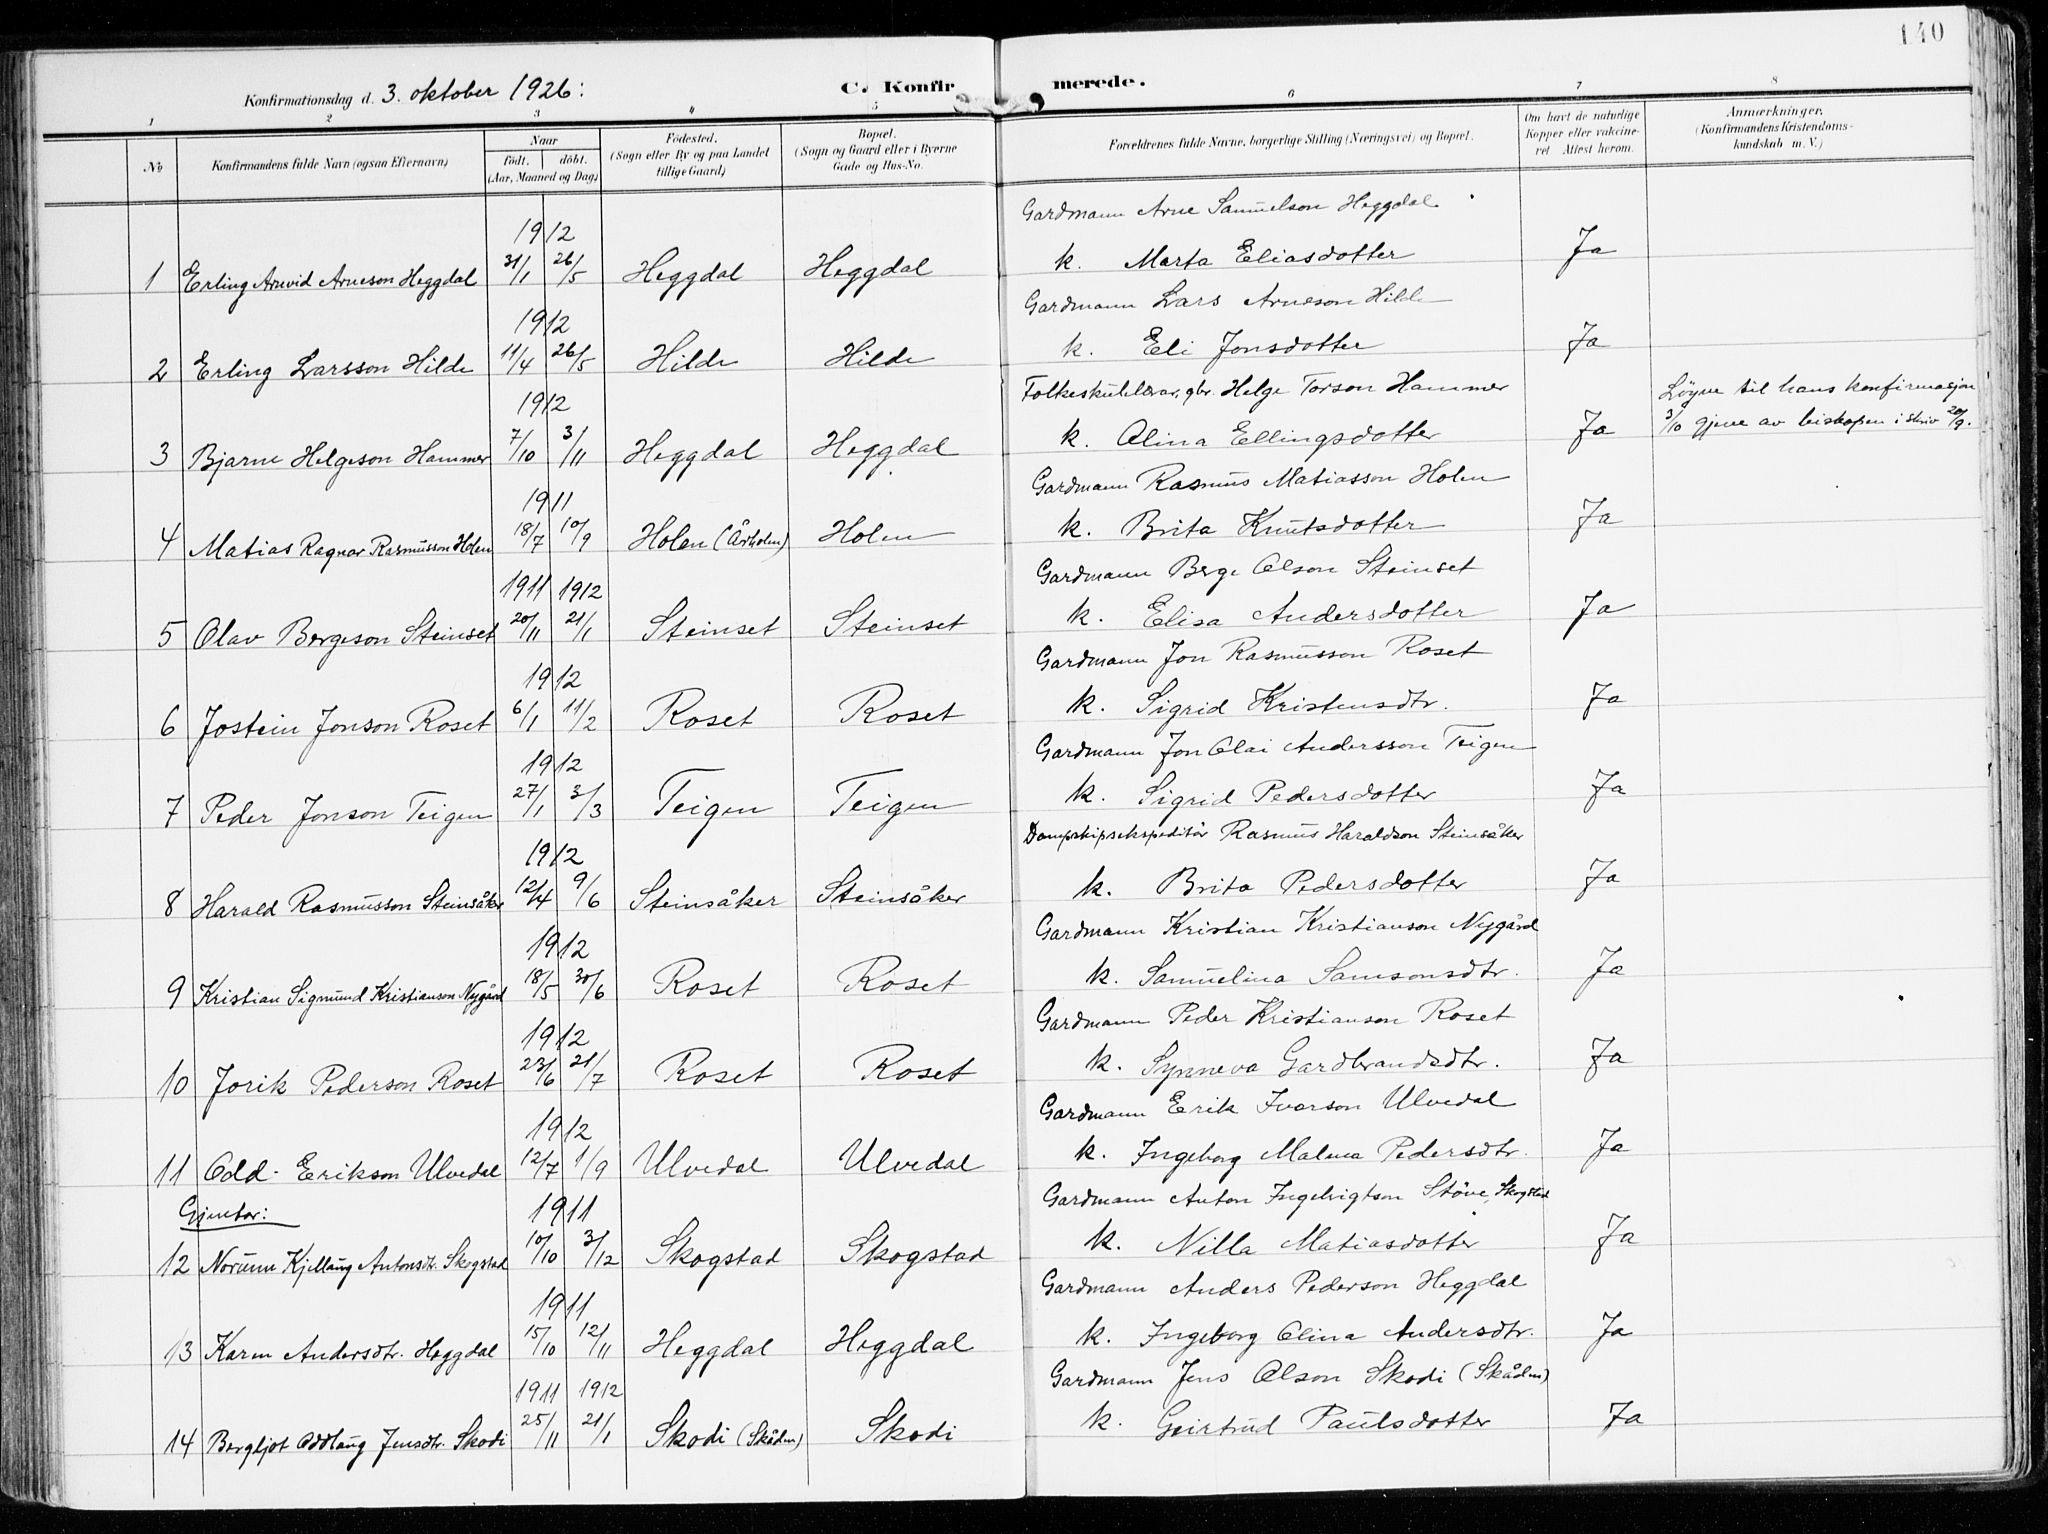 140
Konfirmationsdag d. 3. oktober 1926: C. Konfir merede.
1 2 3 4 5 6 7 8
No
Konfirmandens fulde Navn (ogsaa Efternavn)
Naar
født. døbt.
(Aar, Maaned og Dag)
Fødested.
(Sogn eller By og paa Landet
tillige Gaard)
Bopæl.
(Sogn og Gaard eller i Byerne
Gade og Hus-No.
Forældrenes fulde Navne, borgerlige Stilling (Næringsvei) og Bopæl.
Om havt de naturlige
Kopper eller vakcine-
ret Attest herom.
Anmærkninger.
(Konfirmandens Kristendoms-
kundskab m. V.)
Gardmann Arne Samuelson Heggdal
1912
1 Erling Arnvid Arneson Heggdal 31/1 26/5 Heggdal Heggdal k. Marta Eliasdotter Ja
Gardmann Lars Arneson Hilde
1912
2 Erling Larsson Hilde 11/4 26/5 Hilde Hilde k. Eli Jonsdotter Ja
Folkeskulelærar, gbr. Helge Torson Hammer Løyve til hans konfirmasjon
1912
3 Bjarne Helgeson Hammer 7/10 3/11 Heggdal Heggdal k. Olina Ellingsdotter Ja 3/10 gjeve av biskopen i skriv 20/9.
Gardmann Rasmus Matiasson Holen
1911
4 Matias Ragnar Rasmusson Holen 18/7 10/9 Holen (Årholen) Holen k. Brita Knutsdotter Ja
Gardmann Berge Olson Steinset
1911 1912
5 Olav Bergeson Steinset 20/11 21/1 Steinset Steinset k. Elisa Andersdotter Ja
Gardmann Jon Rasmusson Roset
1912
6 Jostein Jonson Roset 6/1 11/2 Roset Roset k. Sigrid Kristensdtr. Ja
Gardmann Jon Olai Andersson Teigen
1912
7 Peder Jonson Teigen 27/1 3/3 Teigen Teigen k. Sigrid Pedersdotter Ja
Dampskipsekspeditør Rasmus Haraldson Steinsåker
1912
8 Harald Rasmusson Steinsåker 12/4 9/6 Steinsåker Steinsåker k. Brita Pedersdotter Ja
Gardmann Kristian Kristianson Nygård
1912
9 Kristian Sigmund Kristianson Nygård 18/5 30/6 Roset Roset k. Samuelina Samsonsdtr. Ja
Gardmann Peder Kristianson Roset
1912
10 Jorik Pederson Roset 23/6 21/7 Roset Roset k. Synneva Gardbrandsdtr. Ja
Gardmann Eerik Ivarson Ulvedal
1912
11 Odd Erikson Ulvedal 12/7 1/9 Ulvedal Ulvedal k. Ingeborg Malena Pedersdtr. Ja
Gjentor:
Gardmann Anton Ingebrigtson Støve, Skogstad
1911
12 Norunn Kjellaug Antonsdtr. Skogstad 10/10 3/12 Skogstad Skogstad k. Nilla Matiasdotter Ja
Gardmann Anders Pederson Heggdal
1911
13 Karen Andersdtr. Heggdal 15/10 12/11 Heggdal Heggdal k. Ingeborg Olina Andersdtr. Ja
Gardmann Jens Olson Skodi (Skåden)
1911 1912
14 Bergljot Oddlaug Jensdtr. Skodi 25/11 21/1 Skodi (Skåden) Skodi k. Geirtrud Paulsdotter Ja